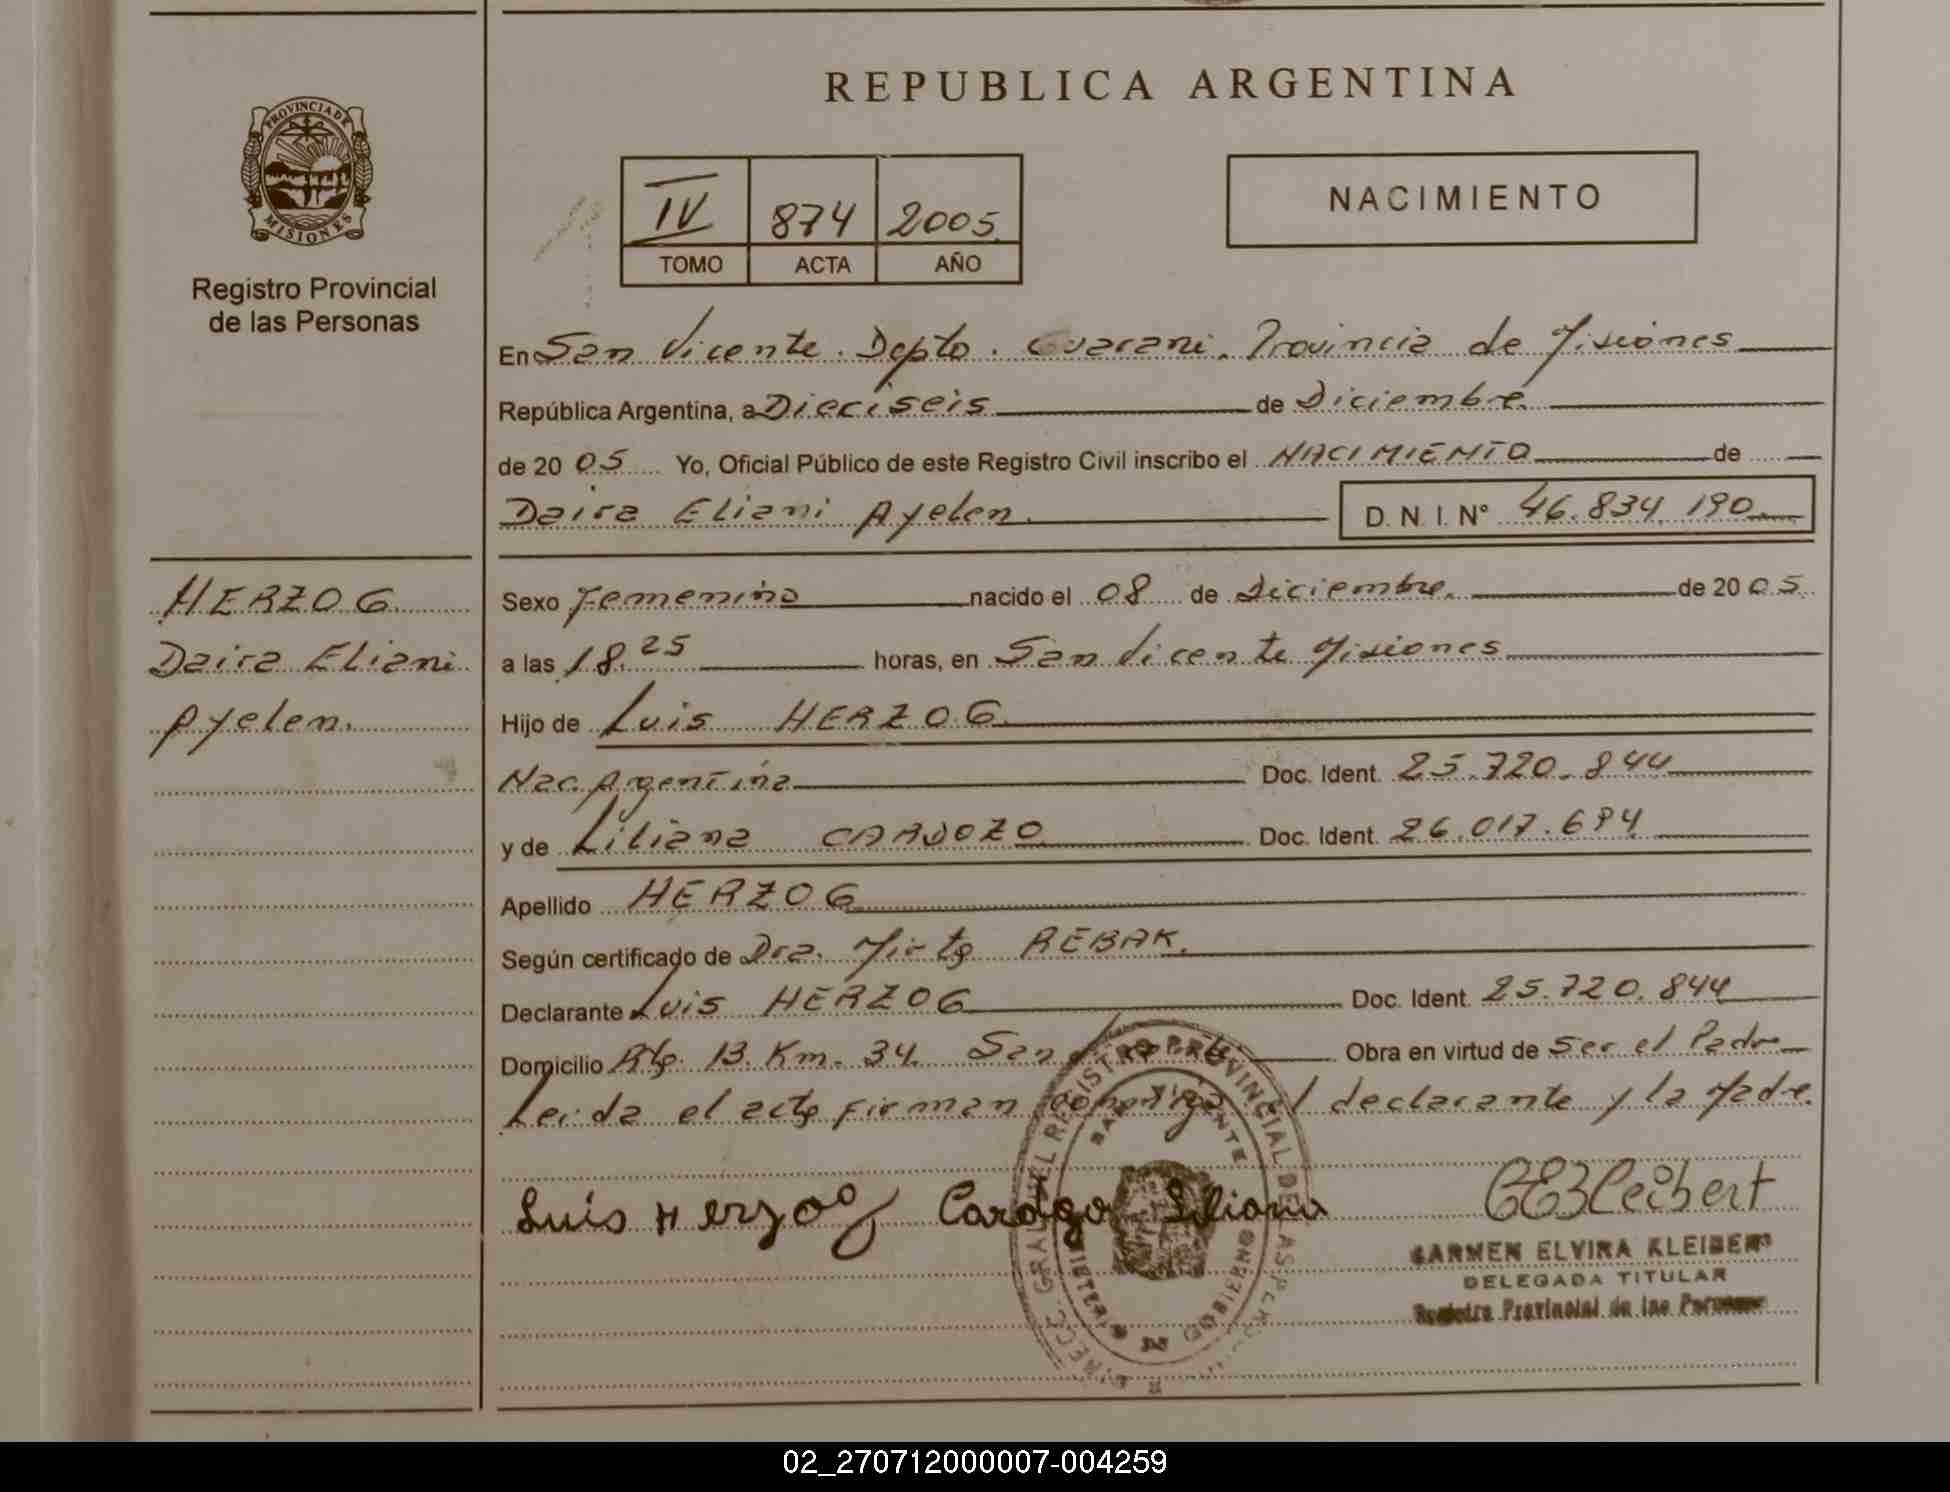 REPUBLICA ARGENTINA
PROVINCIA DE
MISIONES
Registro Provincial
de las Personas
IV 874 2005
TOMO ACTA AÑO
NACIMIENTO
En San Vicente. Depto. Guarani. Provincia de Misiones
República Argentina, a Dieciseis de Diciembre.
de 2005 Yo, Oficial Público de este Registro Civil inscribo el NACIMIENTO de
Daira Eliani Ayelen. D. N. I. Nº 46.834.190
HERZOG
Daira Eliani
Ayelen.
Sexo Femenino nacido el 08 de Diciembre. de 2005.
a las 18.25 horas, en San Vicente Misiones
Hijo de Luis HERZOG
Nac. Argentina Doc. Ident. 25.720.844
y de Liliana CARDOZO Doc. Ident. 26.017.694
Apellido HERZOG
Según certificado de Dra. Mirta REBAK.
Declarante Luis HERZOG Doc. Ident. 25.720.844
Domicilio Rta. 13. Km. 34. San Vicente Obra en virtud de ser el Padre
Leida el acta firman conmigo el declarante y la Madre.
Luis Herzog Cardozo Liliana CEKleibert
CARMEN ELVIRA KLEIBERT
DELEGADA TITULAR
Registro Provincial de las Personas
REGISTRO PROVINCIAL DE LAS PERSONAS
SAN VICENTE
02_270712000007-004259